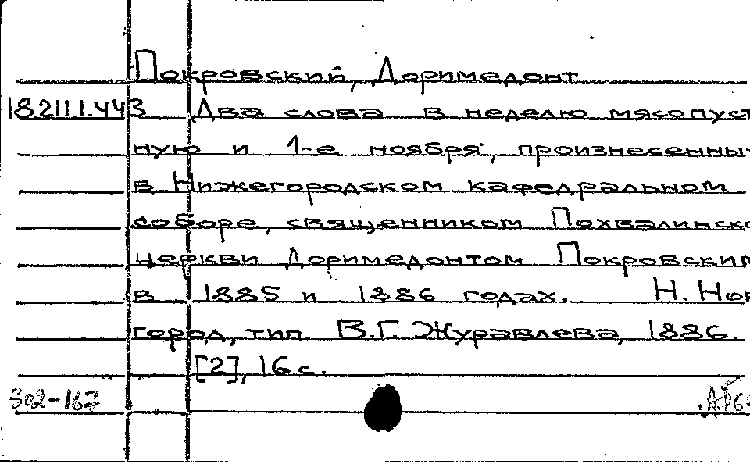 Покровский, Доримедонт
18.211.1.443 Два слова в неделю мясопуст
ную и 1-е ноября, произнесенны
в Нижегородском кафедральном
соборе, священником Похвалинско
церкви Доримедонтом Покровским
в 1885 и 1886 годах. Н. Нов
город, тип. В.Г. Журавлева, 1886.
[2], 16 с.
302-167